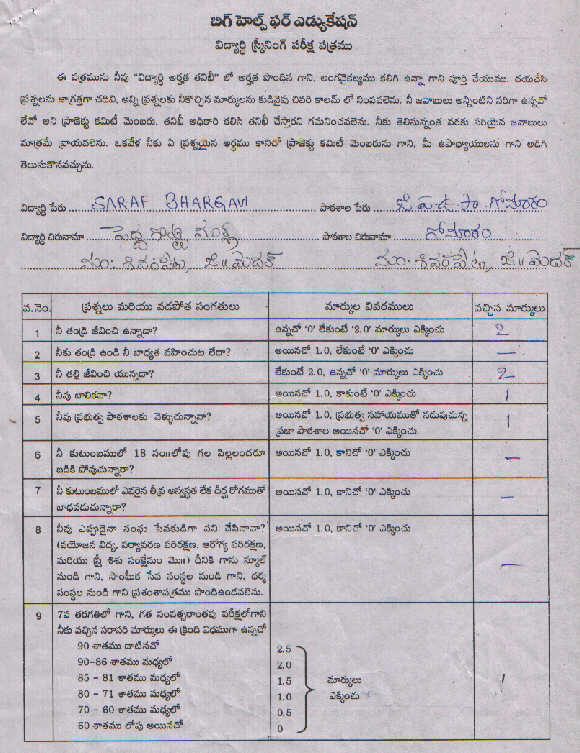 బిగ్ హెల్ప్ ఫర్ ఎడ్యుకేషన్
విద్యార్థి స్క్రీనింగ్ పరీక్ష పత్రము
ఈ పత్రమును నీవు "విద్యార్థి అర్హత తనిఖీ" లో అర్హత పొందిన గాని, అంగవైకల్యము కలిగి ఉన్నా గాని పూర్తి చేయుము. దయచేసి
ప్రశ్నలను జాగ్రత్తగా చదివి, అన్ని ప్రశ్నలకు నీకొచ్చిన మార్కులను కుడివైపు చివరి కాలమ్ లో నింపవలెను. నీ జవాబులు అన్నింటిని సరిగా ఉన్నవో
లేవో అని ప్రాజెక్టు కమిటీ మెంబరు, తనిఖీ అధికారి కలిసి తనిఖీ చేస్తారని గమనించవలెను. నీకు తెలిసినంత వరకు సరియైన జవాబులు
మాత్రమే వ్రాయవలెను. ఒకవేళ నీకు ఏ ప్రశ్నయైన అర్థము కానిచో ప్రాజెక్టు కమిటీ మెంబరును గాని, మీ ఉపాధ్యాయులను గాని అడిగి
తెలుసుకొనవచ్చును.
విద్యార్థి పేరు SARAF BHARGAVI పాఠశాల పేరు జి.ప.ఉ.పా గోమారం
విద్యార్థి చిరునామా పెద్ద గొట్టిముక్ల పాఠశాల చిరునామా గోమారం
మం: శివంపేట, జి॥ మెదక్ మం: శివంపేట, జి॥ మెదక్
వ.నెం. ప్రశ్నలు మరియు వడపోత సంగతులు మార్కుల వివరములు వచ్చిన మార్కులు
1 నీ తండ్రి జీవించి ఉన్నాడా? ఉన్నచో '0' లేకుంటే '2.0' మార్కులు ఎక్కించు 2
2 నీకు తండ్రి ఉండి నీ బాధ్యత వహించుట లేదా? అయినచో 1.0, లేకుంటే '0' ఎక్కించు —
3 నీ తల్లి జీవించి యున్నదా? లేకుంటే 2.0, ఉన్నచో '0' మార్కులు ఎక్కించు 2
4 నీవు బాలికవా? అయినచో 1.0, కాకుంటే '0' ఎక్కించు 1
5 నీవు ప్రభుత్వ పాఠశాలకు వెళ్ళుచున్నావా? అయినచో 1.0, ప్రభుత్వ సహాయముతో నడుపుచున్న 1
ప్రజా పాఠశాల అయినచో '0' ఎక్కించు
6 నీ కుటుంబములో 18 సం॥లోపు గల పిల్లలందరూ అయినచో 1.0, కానిచో '0' ఎక్కించు —
బడికి పోవుచున్నారా?
7 నీ కుటుంబములో ఎవరైన తీవ్ర అస్వస్థత లేక దీర్ఘ రోగముతో అయినచో 1.0, కానిచో '0' ఎక్కించు —
బాధపడుచున్నారా?
8 నీవు ఎప్పుడైనా సంఘ సేవకుడిగా పని చేసినావా? అయినచో 1.0, కానిచో '0' ఎక్కించు —
(వయోజన విద్య, పర్యావరణ పరిరక్షణ, ఆరోగ్య పరిరక్షణ,
మరియు స్త్రీ శిశు సంక్షేమం మొ॥) దీనికి గాను స్కూల్
నుండి గాని, సాంఘిక సేవ సంస్థల నుండి గాని, ధర్మ
సంస్థల నుండి గాని ప్రశంశాపత్రము పొందిఉండవలెను.
9 7వ తరగతిలో గాని, గత సంవత్సరాంతపు పరీక్షలోగాని
నీకు వచ్చిన సరాసరి మార్కులు ఈ క్రింది విధముగా ఉన్నచో
90 శాతము దాటినచో 2.5
90-86 శాతము మధ్యలో 2.0
85 - 81 శాతము మధ్యలో 1.5 మార్కులు 1
80 - 71 శాతము మధ్యలో 1.0 ఎక్కించు
70 - 60 శాతము మధ్యలో 0.5
60 శాతము లోపు అయినచో 0